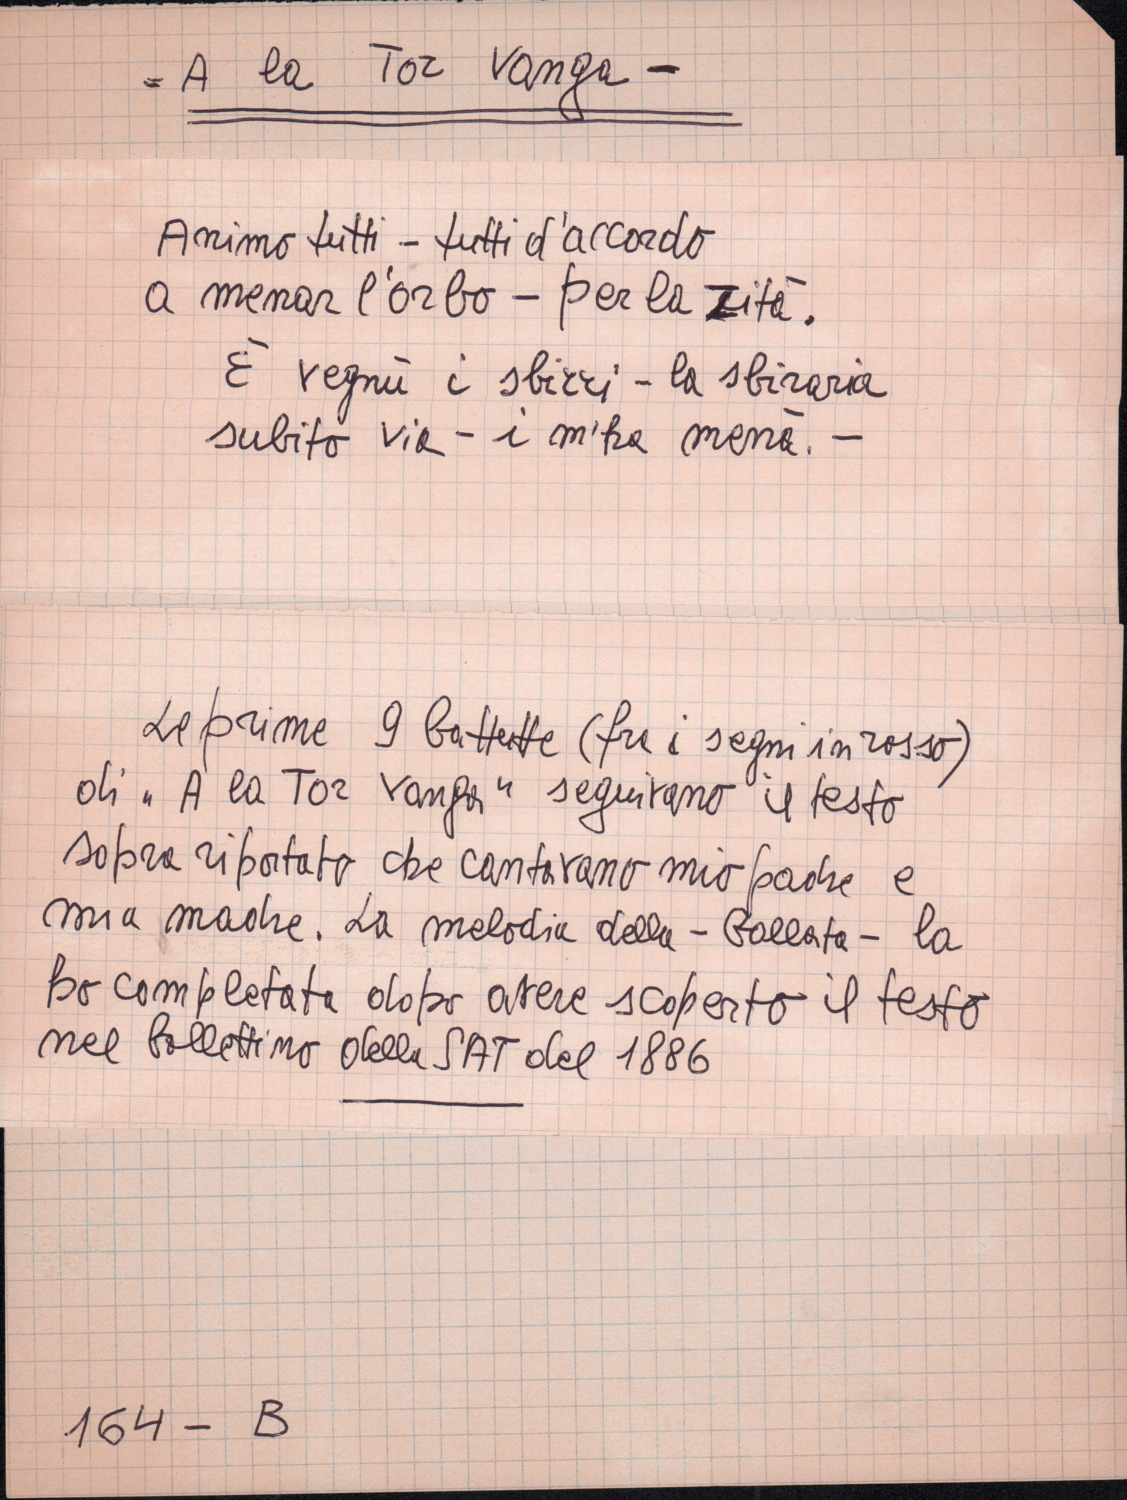 = A la Tor Vanga -
Animo tutti - tutti d'accordo
a menar l'orbo - per la zità.
È vegnù i sbirri - la sbiraria
subito via - i m'ha menà. -
Le prime 9 battute (fra i segni in rosso)
di „ A la Tor Vanga " seguivano il testo
sopra riportato che cantavano mio padre e
mia madre. La melodia della - Ballata - la
ho completata dopo avere scoperto il testo
nel Bollettino della SAT del 1886
164 - B